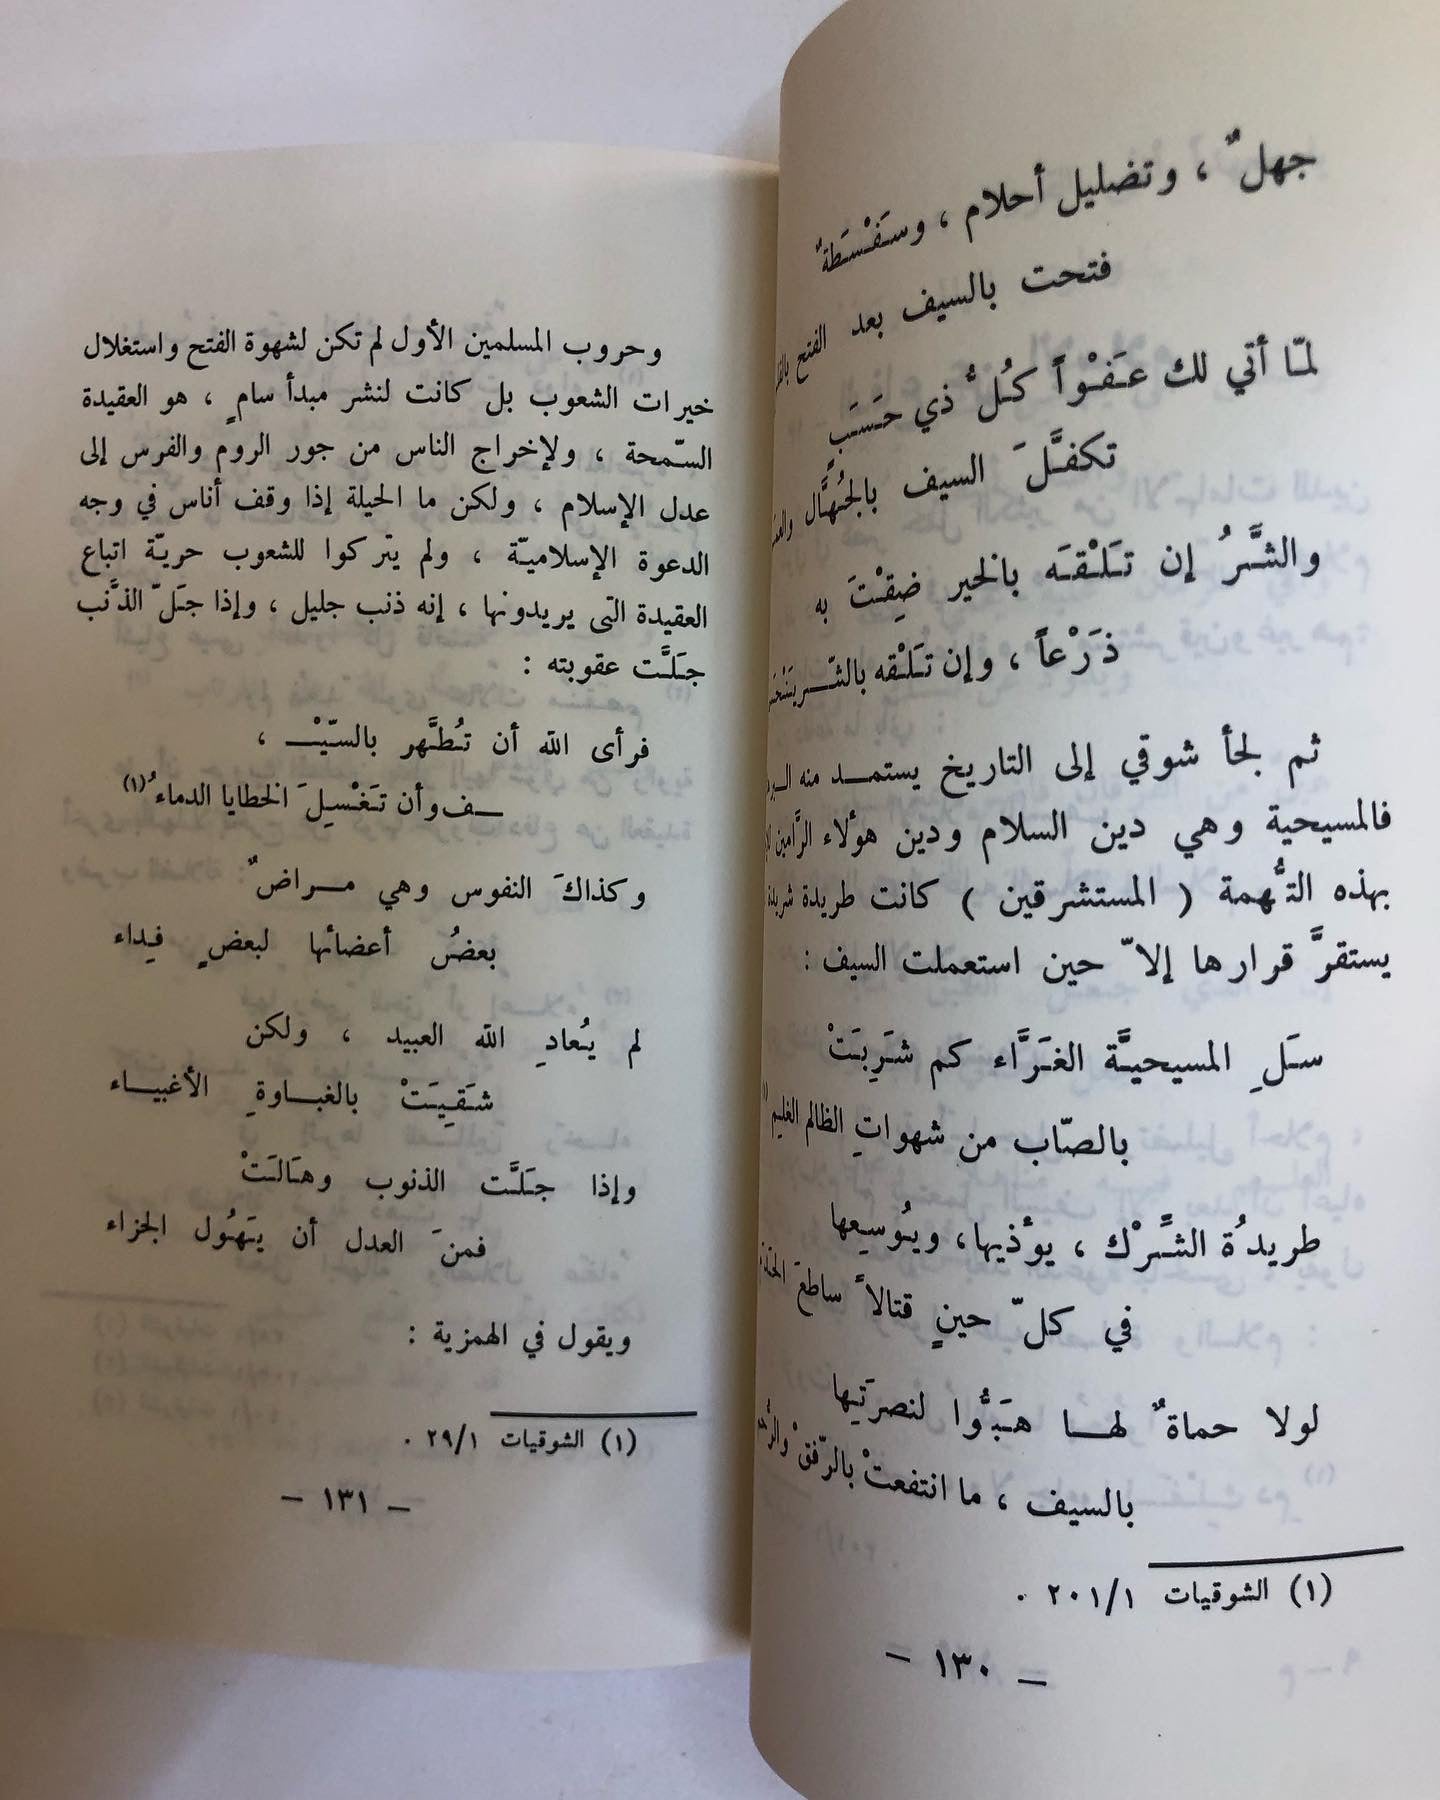 جهلٌ ، وتضليل أحلام ، وسَفْسَطةٌ
فتحت بالسيف بعد الفتح
لمّا أتي لك عَفْواً كُلُّ ذي حَسَبَ
تكفَّلَ السيف بالجُهَّال
والشَّرُ إن تَلْقَه بالخير ضِقْتَ به
ذَرْعاً ، وإن تَلْقه بالشّر
ثم لجأ شوقي إلى التاريخ يستمد منه
فالمسيحية وهي دين السلام ودين هؤلاء الرَّامين
بهذه التُّهمة ( المستشرقين ) كانت طريدة
يستقرَّ قرارها إلاّ حين استعملت السيف :
سَلِ المسيحيَّة الغَرَّاء كم شَرِبَتْ
بالصّاب من شهواتِ الظالم الغليم (١)
طريدُة الشَّرْك ، يوْذيها، ويُوسِعها
في كلّ حينٍ قتالاً ساطعَ
لولا حماةٌ لها هَبُّوا لنصرَتِها
بالسيف ، ما انتفعتْ بالرّفق
(١) الشوقيات ٢٠١/١ .
– ١٣٠ –
وحروب المسلمين الأول لم تكن لشهوة الفتح واستغلال
خيرات الشعوب بل كانت لنشر مبدأ سامٍ ، هو العقيدة
السّمحة ، ولإخراج الناس من جور الروم والفرس إلى
عدل الإسلام ، ولكن ما الحيلة إذا وقف أناس في وجه
الدعوة الإسلاميّة ، ولم يتركوا للشعوب حريّة اتباع
العقيدة التى يريدونها ، إنه ذنب جليل ، وإذا جَلّ الذَّنب
جَلَّت عقوبته :
فرأى الله أن تُطهَّر بالسّيْـ ،
ـف وأن تَغْسِلَ الخطايا الدماءُ (١)
وكذاكَ النفوس وهي مراضٌ
بعضُ أعضائها لبعضٍ فِداء
لم يُعادِ الله العبيد ، ولكن
شَقِيَتْ بالغباوةِ الأغبياء
وإذا جَلَّت الذنوب وهَالَتْ
فمنَ العدل أن يَهُول الجزاء
ويقول في الهمزية :
(١) الشوقيات ٢٩/١ .
– ١٣١ –